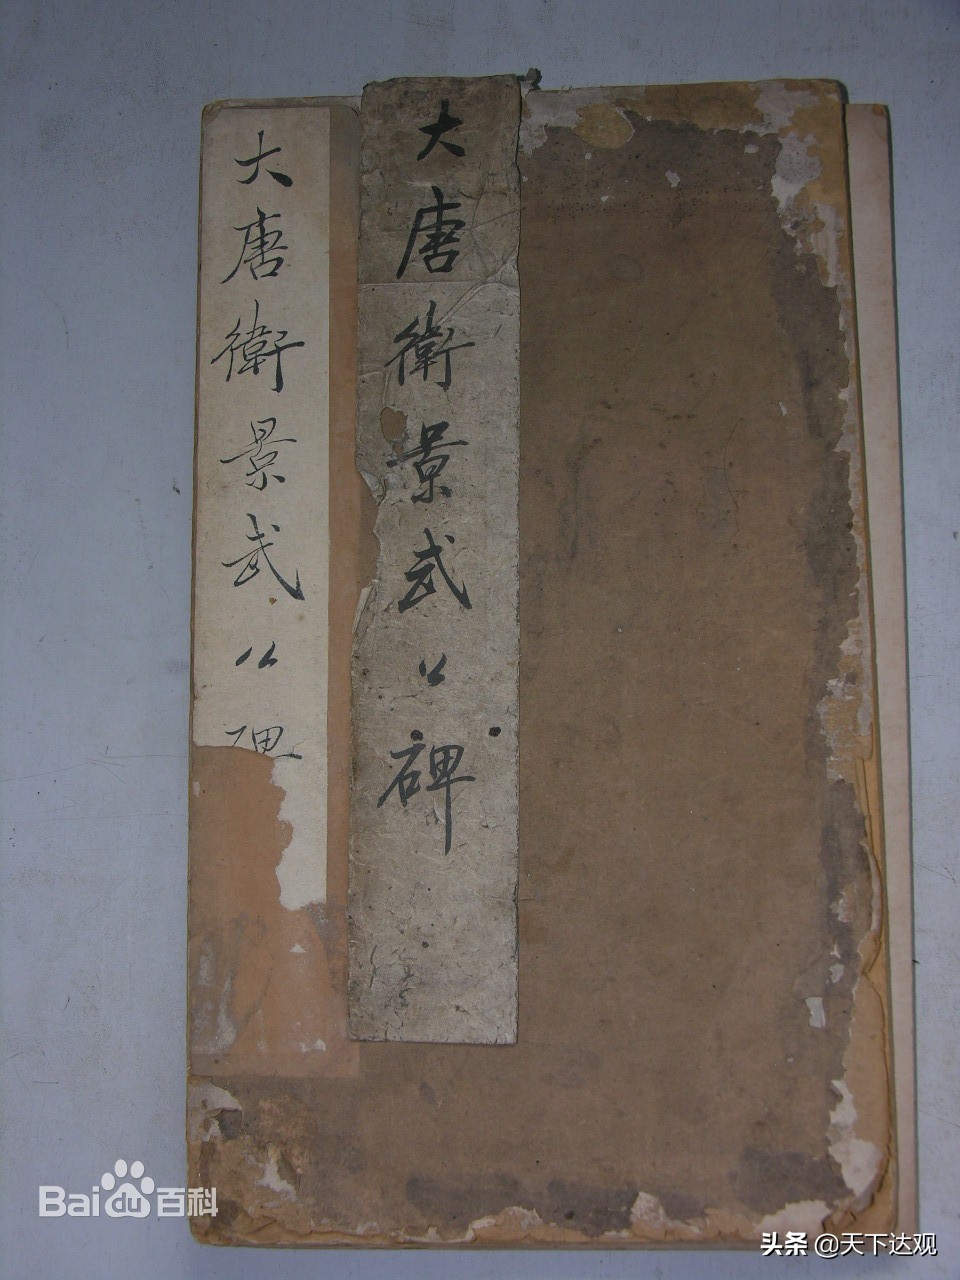 大唐衛景武公碑
大唐衛景武公碑
Bai 百科
头条 @天下达观